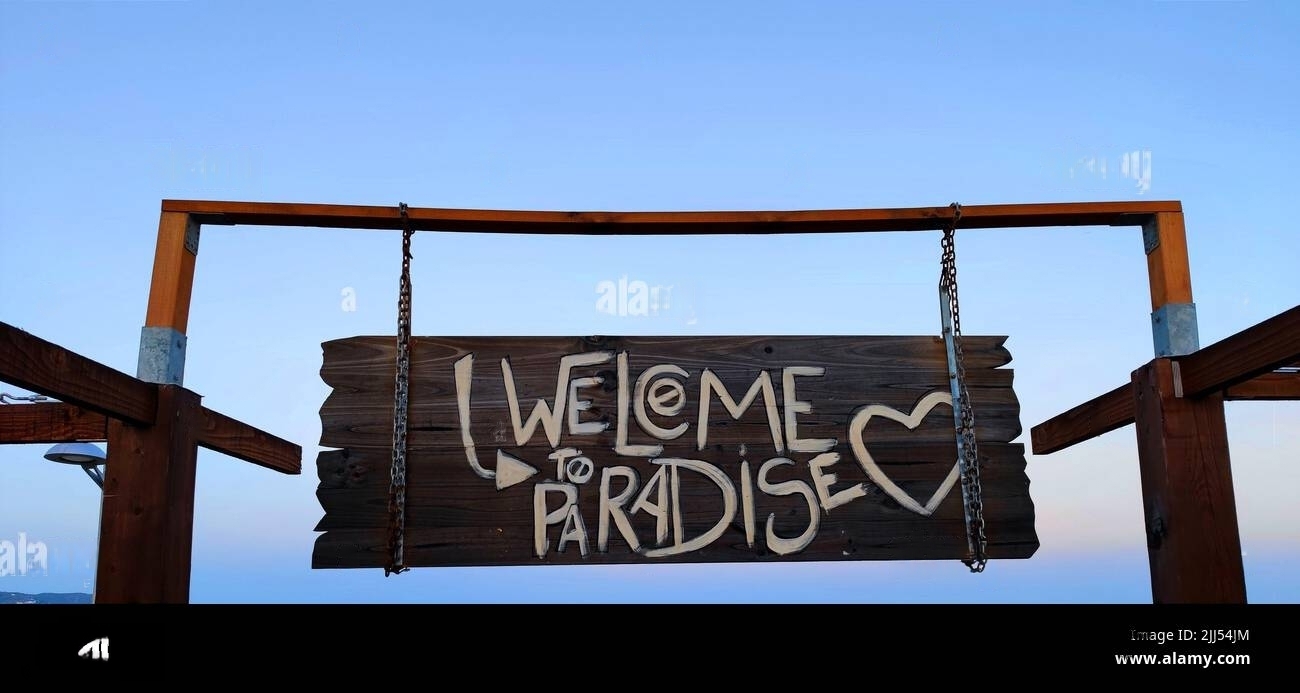 WELCOME
TO
PARADISE
alamy
a
alamy
a
Image ID: 2JJ54JM
www.alamy.com